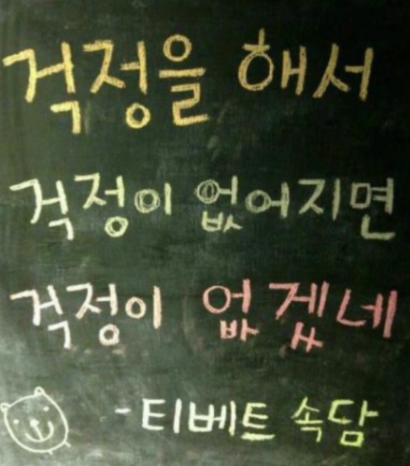 걱정을 해서
걱정이 없어지면
걱정이 없겠네
- 티베트 속담